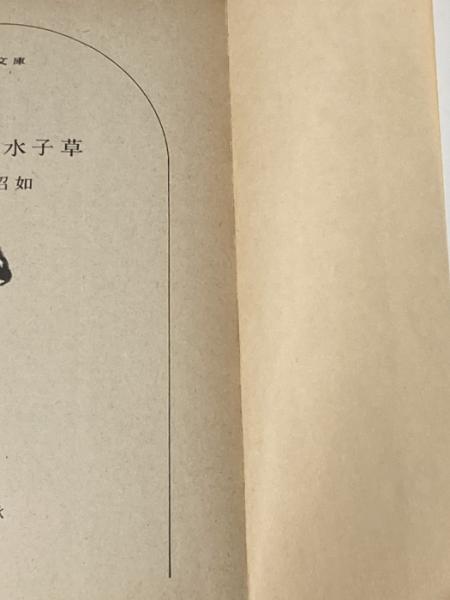 文庫
水子草
昭如